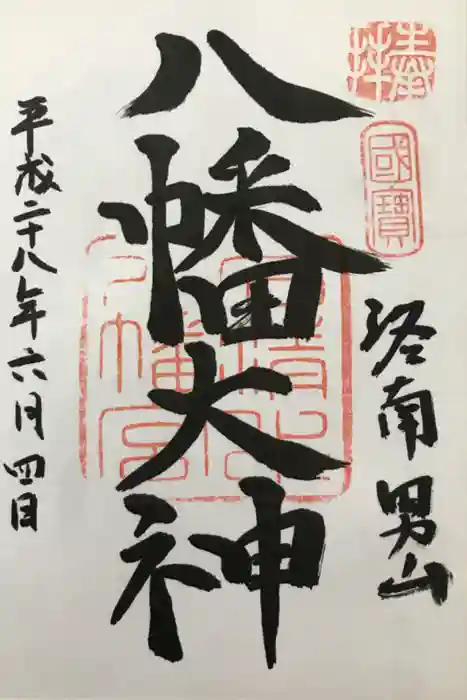 奉拝
國寶
洛南男山
八幡大神
石清水八幡宮
平成二十八年六月四日